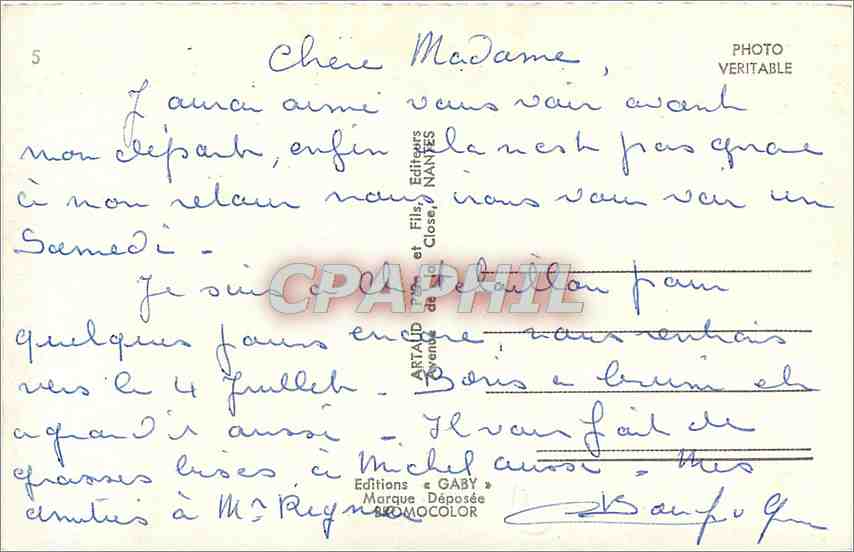 5
PHOTO
VERITABLE
Chère Madame,
J'aurai aimé vous voir avant
mon départ, enfin cela n'est pas grave
à mon retour nous irons vous voir un
Samedi -
Je suis à Chatelaillon pour
quelques jours encore, nous rentrons
vers le 4 Juillet - Boris a bruni et
a grandi aussi - Il vous fait de
grosses bises, à Michel aussi - Mes
amitiés à Mr
ARTAUD Père et Fils, Editeurs
Avenue de la Close, NANTES
Editions « GABY »
Marque Déposée
BROMOCOLOR
CPAPHIL